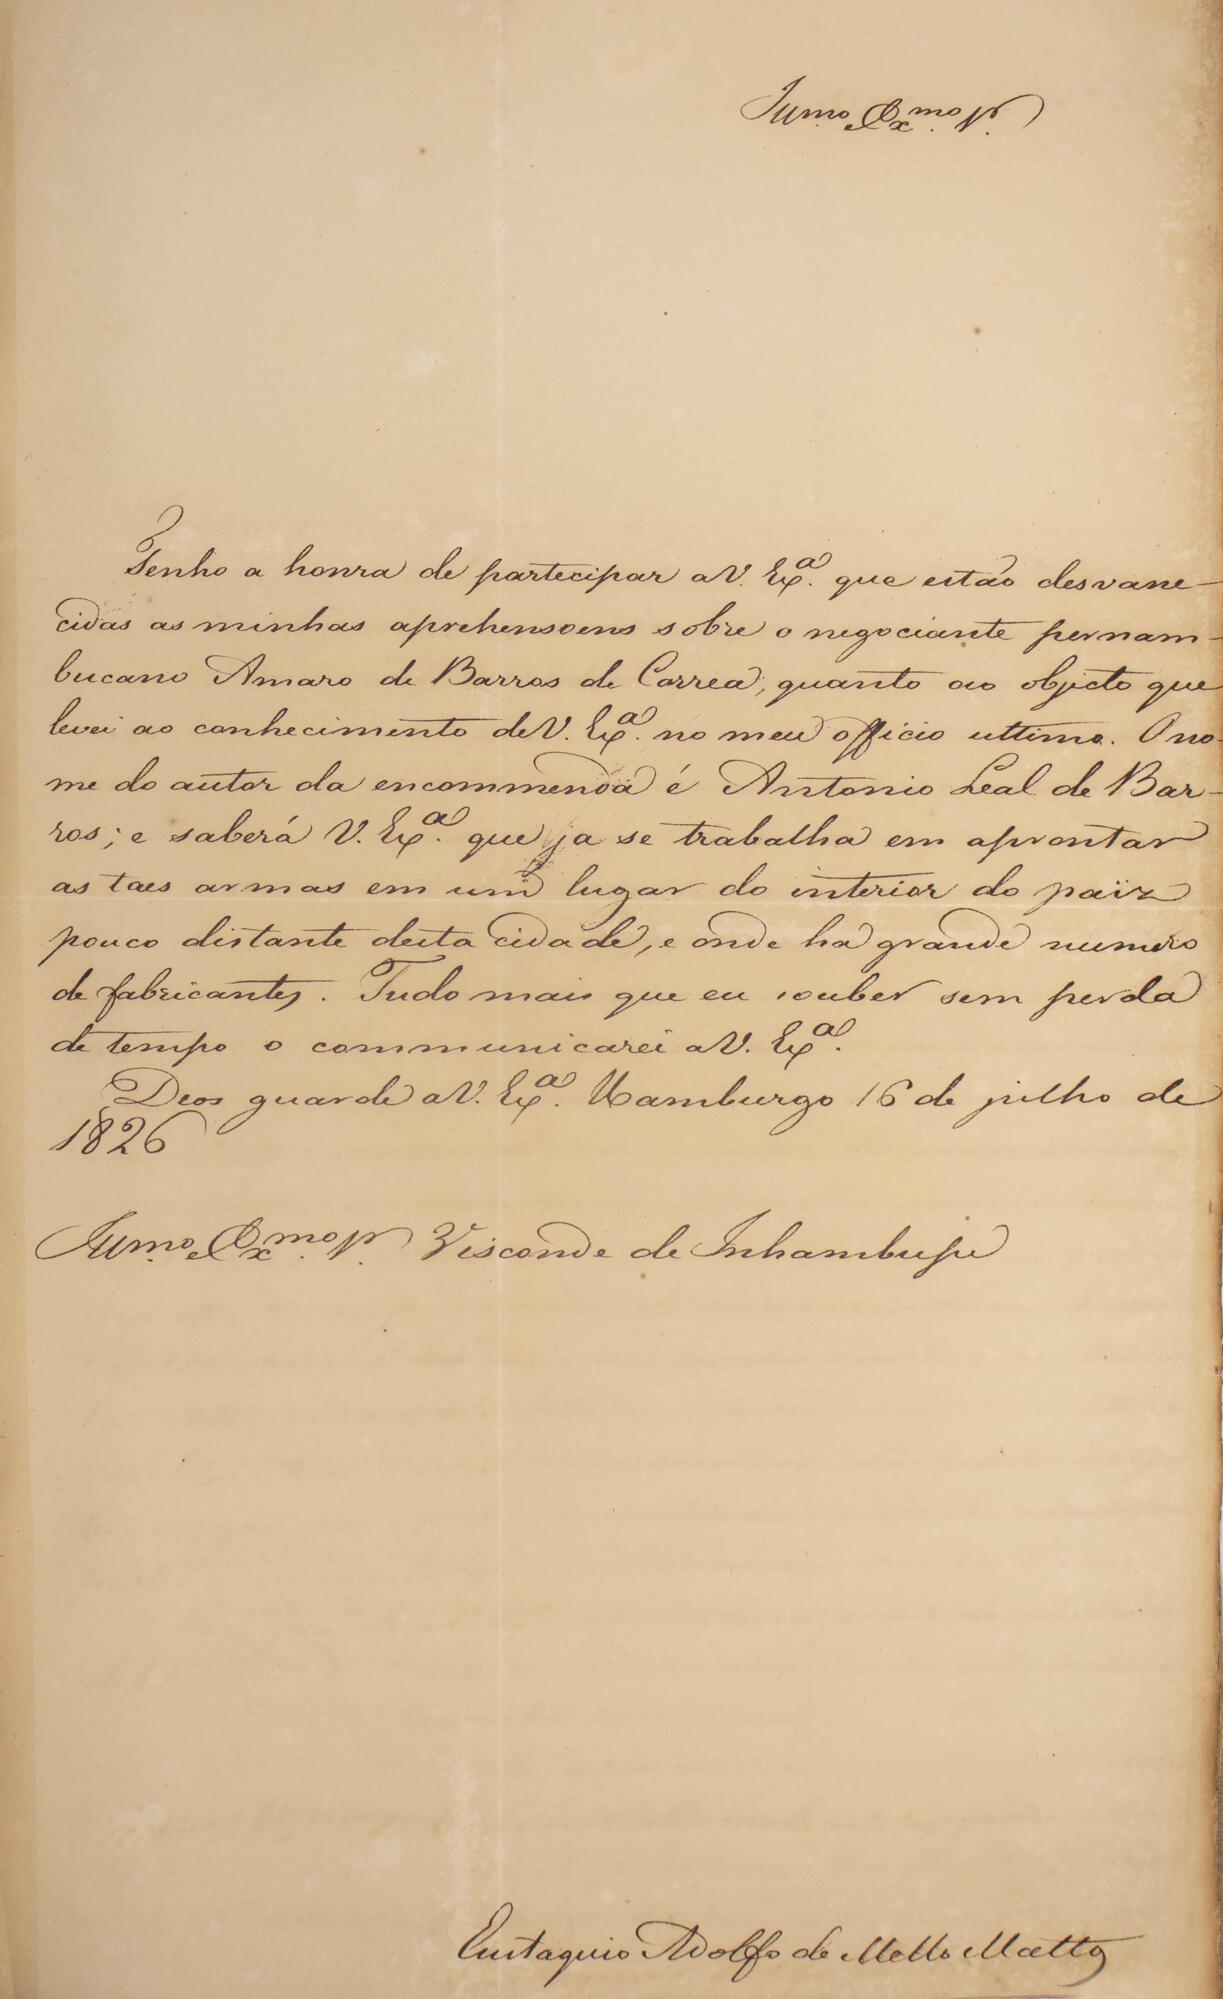 Illmo. Exmo. Sr.
Tenho a honra de partecipar a V. Exa. que estão desvane-
cidas as minhas aprehensoens sobre o negociante pernam-
bucano Amaro de Barros de Correa, quanto ao objecto que
levei ao conhecimento de V. Exa. no meu officio ultimo. O no-
me do autor da encommenda é Antonio Leal de Bar-
ros; e saberá V. Exa. que ja se trabalha em aprontar
as taes armas em um lugar do interior do païz
pouco distante desta cidade, e onde ha grande numero
de fabricantes. Tudo mais que eu souber sem perda
de tempo o communicarei a V. Exa.
Deos guarde a V. Exa. Hamburgo 16 de julho de
1826
Illmo. Exmo. Sr. Visconde de Inhambupe
Eustaquio Adolfo de Mello Mattos